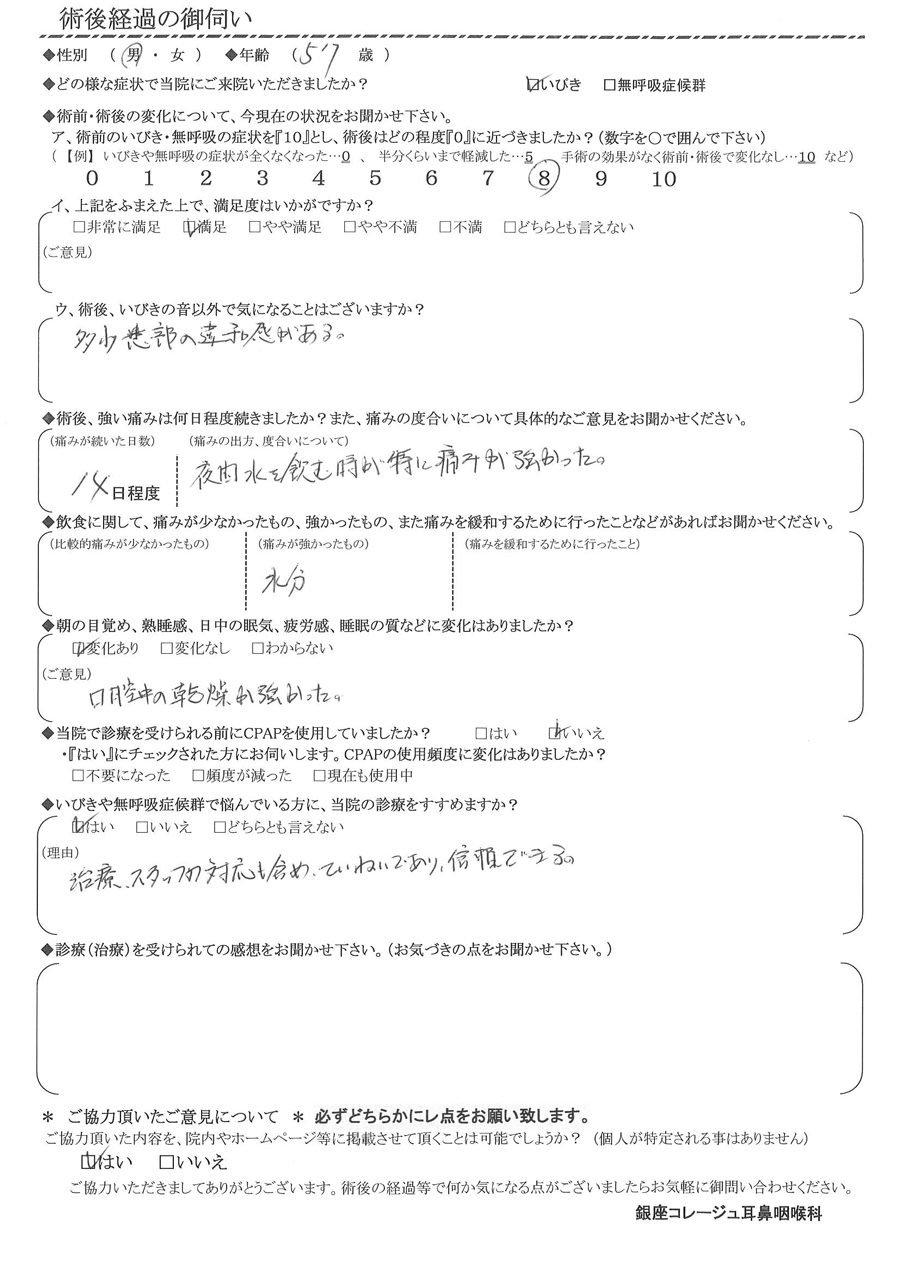 術後経過の御伺い
◆性別 （ 男 ・ 女 ） ◆年齢 （ 57 歳 ）
◆どの様な症状で当院にご来院いただきましたか？ ☑いびき □無呼吸症候群
◆術前・術後の変化について、今現在の状況をお聞かせ下さい。
ア、術前のいびき・無呼吸の症状を『10』とし、術後はどの程度『0』に近づきましたか？（数字を〇で囲んで下さい）
（ 【例】 いびきや無呼吸の症状が全くなくなった…0 、 半分くらいまで軽減した…5 手術の効果がなく術前・術後で変化なし…10 など）
0 1 2 3 4 5 6 7 8 9 10
イ、上記をふまえた上で、満足度はいかがですか？
□非常に満足 ☑満足 □やや満足 □やや不満 □不満 □どちらとも言えない
（ご意見）
ウ、術後、いびきの音以外で気になることはございますか？
多少患部の違和感がある。
◆術後、強い痛みは何日程度続きましたか？また、痛みの度合いについて具体的なご意見をお聞かせください。
（痛みが続いた日数） （痛みの出方、度合いについて）
14日程度 夜間水を飲む時が特に痛みが強かった。
◆飲食に関して、痛みが少なかったもの、強かったもの、また痛みを緩和するために行ったことなどがあればお聞かせください。
（比較的痛みが少なかったもの） （痛みが強かったもの） （痛みを緩和するために行ったこと）
水分
◆朝の目覚め、熟睡感、日中の眠気、疲労感、睡眠の質などに変化はありましたか？
☑変化あり □変化なし □わからない
（ご意見）
口腔中の乾燥が強かった。
◆当院で診療を受けられる前にCPAPを使用していましたか？ □はい ☑いいえ
・『はい』にチェックされた方にお伺いします。CPAPの使用頻度に変化はありましたか？
□不要になった □頻度が減った □現在も使用中
◆いびきや無呼吸症候群で悩んでいる方に、当院の診療をすすめますか？
☑はい □いいえ □どちらとも言えない
（理由）
治療、スタッフの対応も含め、ていねいであり、信頼できる。
◆診療（治療）を受けられての感想をお聞かせ下さい。（お気づきの点をお聞かせ下さい。）
＊ ご協力頂いたご意見について ＊ 必ずどちらかにレ点をお願い致します。
ご協力頂いた内容を、院内やホームページ等に掲載させて頂くことは可能でしょうか？ （個人が特定される事はありません）
☑はい □いいえ
ご協力いただきましてありがとうございます。術後の経過等で何か気になる点がございましたらお気軽に御問い合わせください。
銀座コレージュ耳鼻咽喉科